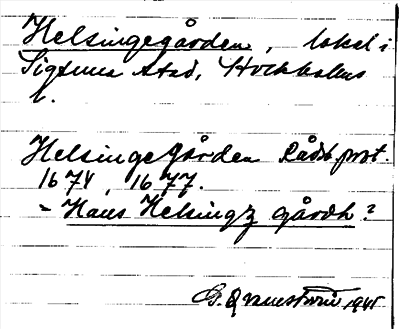 Helsingegården, lokal i
Sigtuna stad, Stockholms
l.
Helsinge gården Rådst. prot.
1674, 1677.
= Hans Helsingz gårdh?
G. Qvarnström 1941